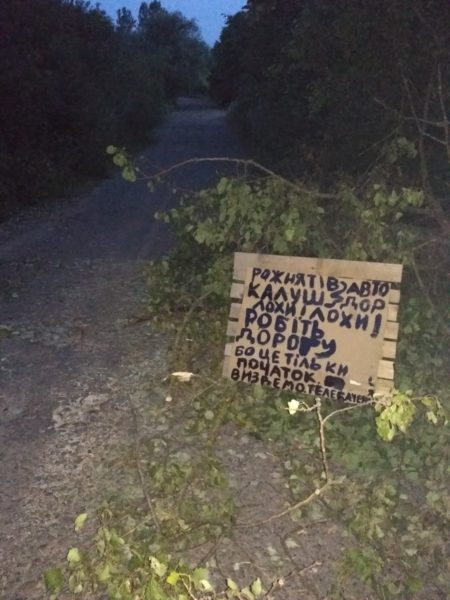 РОЖНЯТІВ АВТО
КАЛУШ ДОР
ЛОХИ І ЛОХИ!
РОБІТЬ
ДОРОГУ
БО ЦЕ ТІЛЬКИ
ПОЧАТОК.